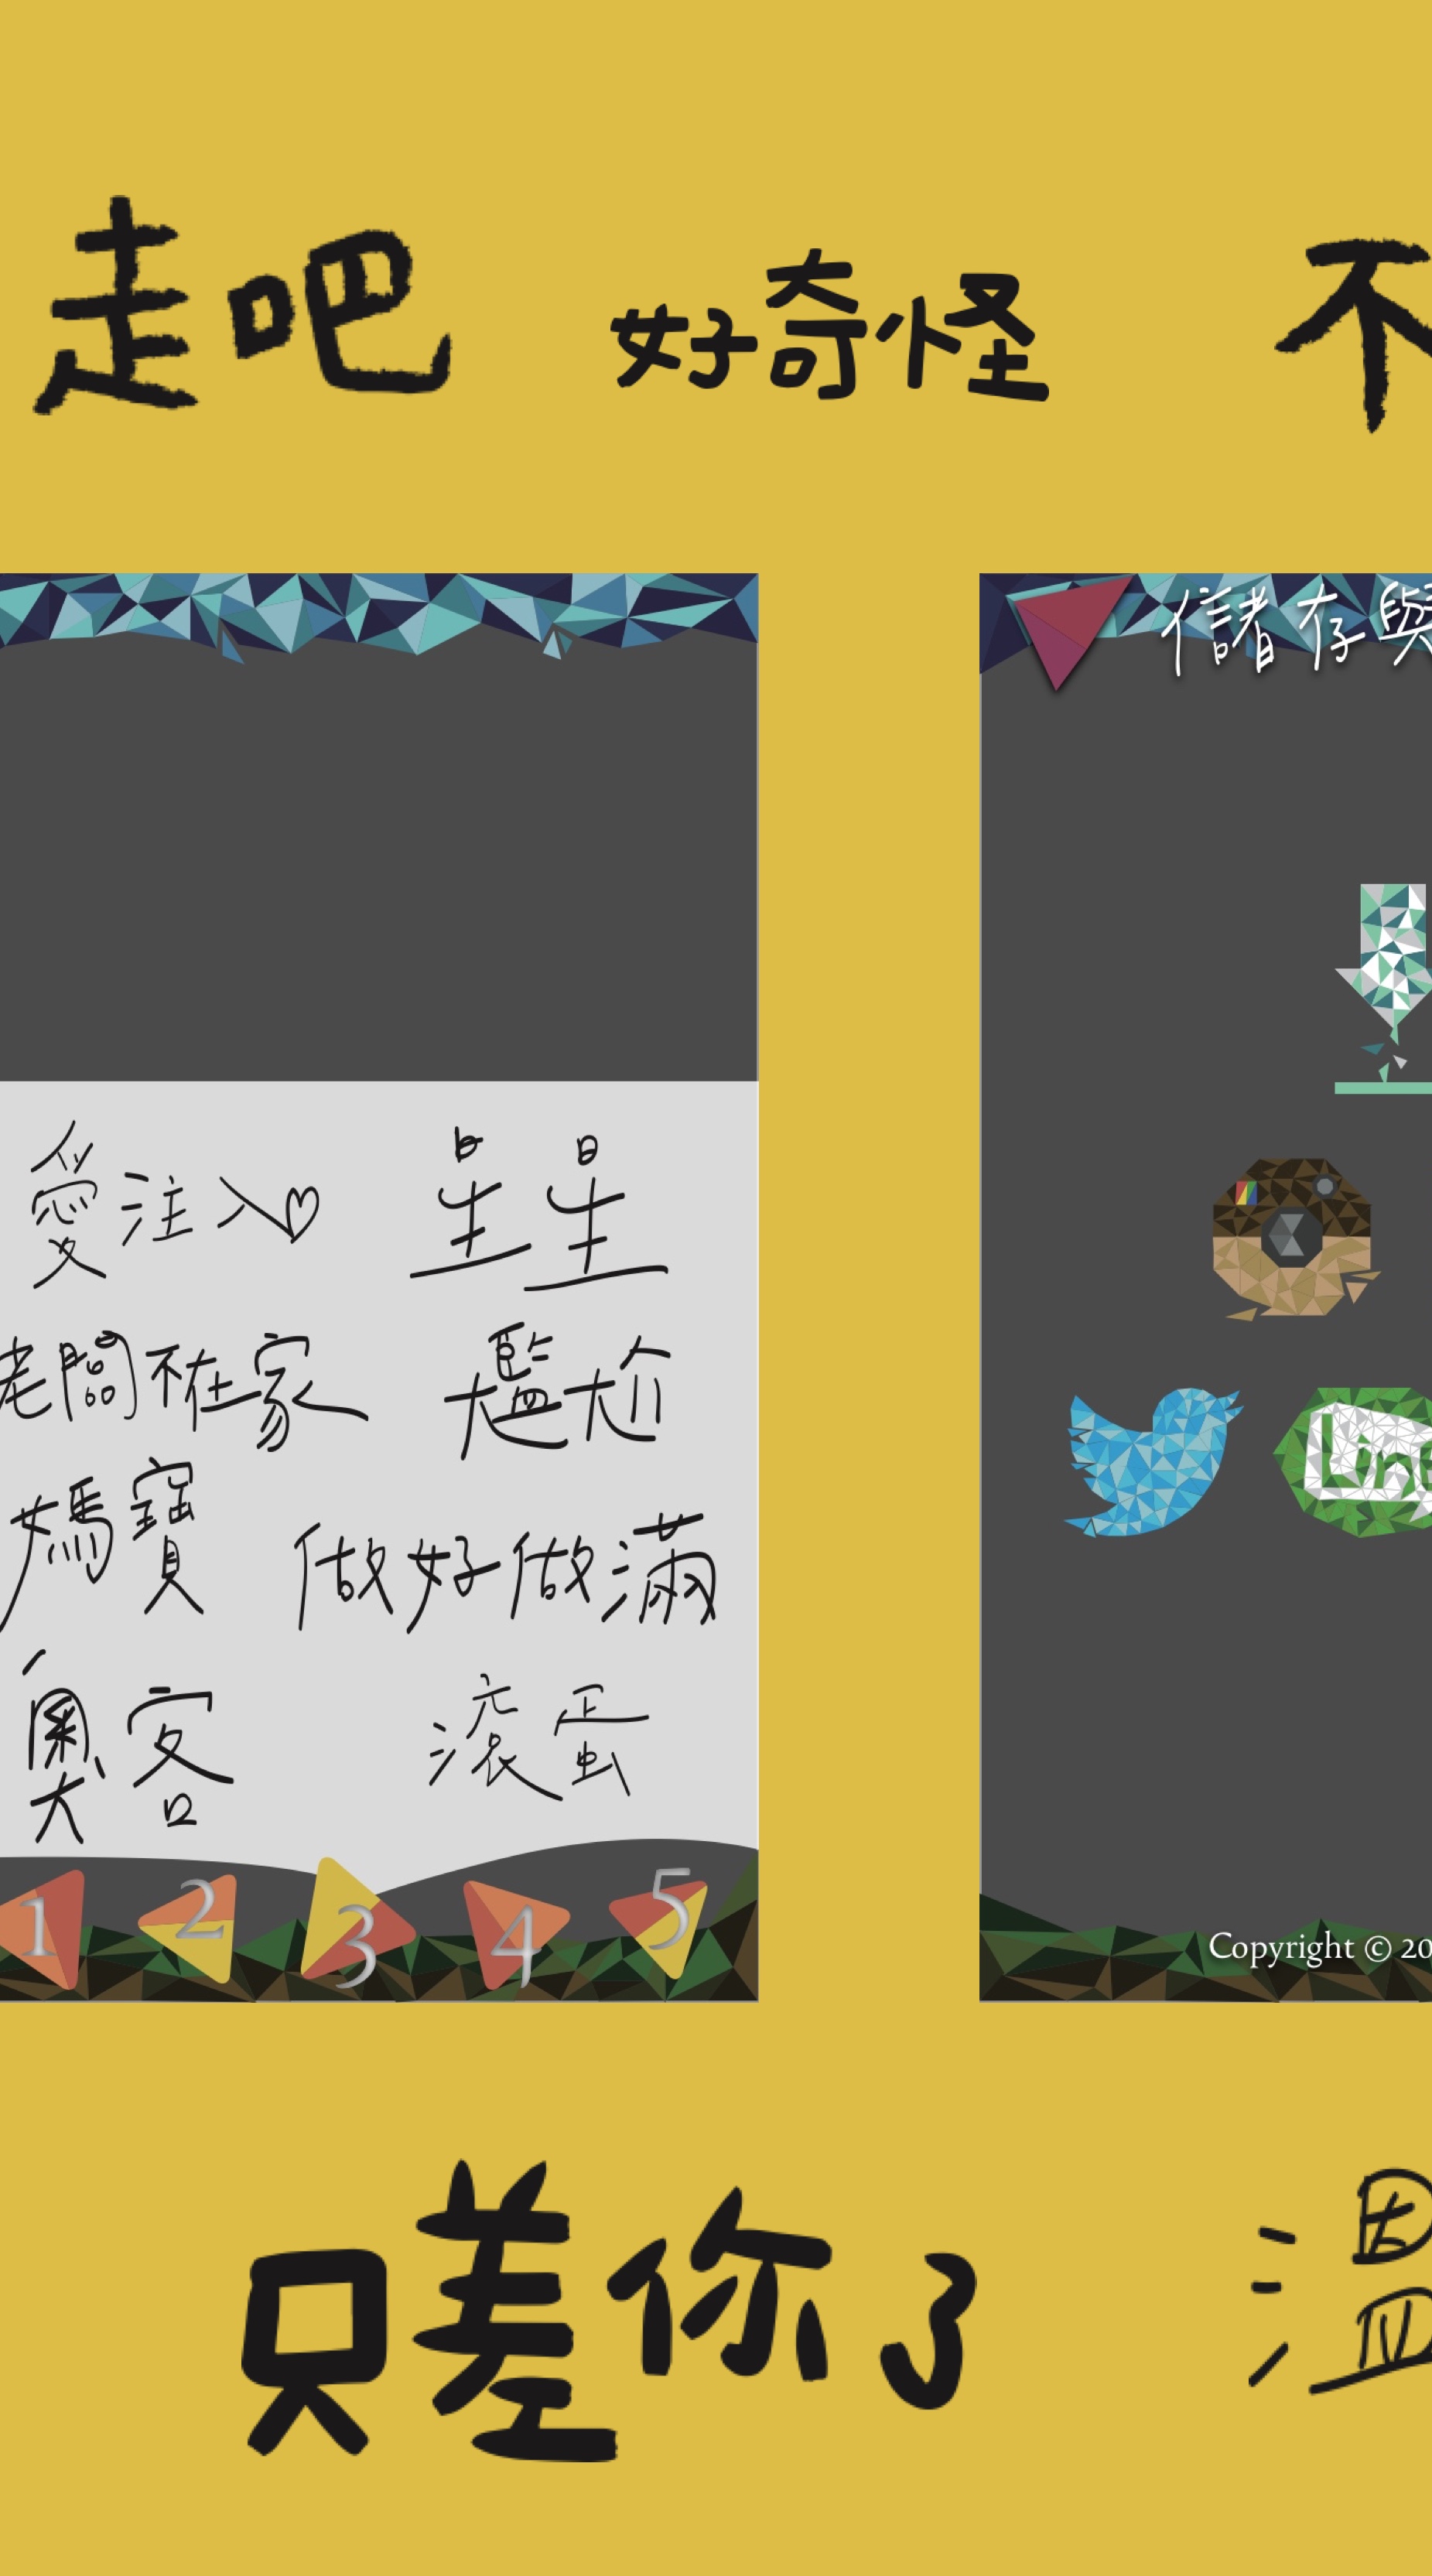 走吧 好奇怪 不
儲存與
愛注入♡ 星星
老闆不在家 尷尬
媽寶 做好做滿
奧客 滾蛋
1 2 3 4 5
Line
Copyright © 20
只差你了 溫